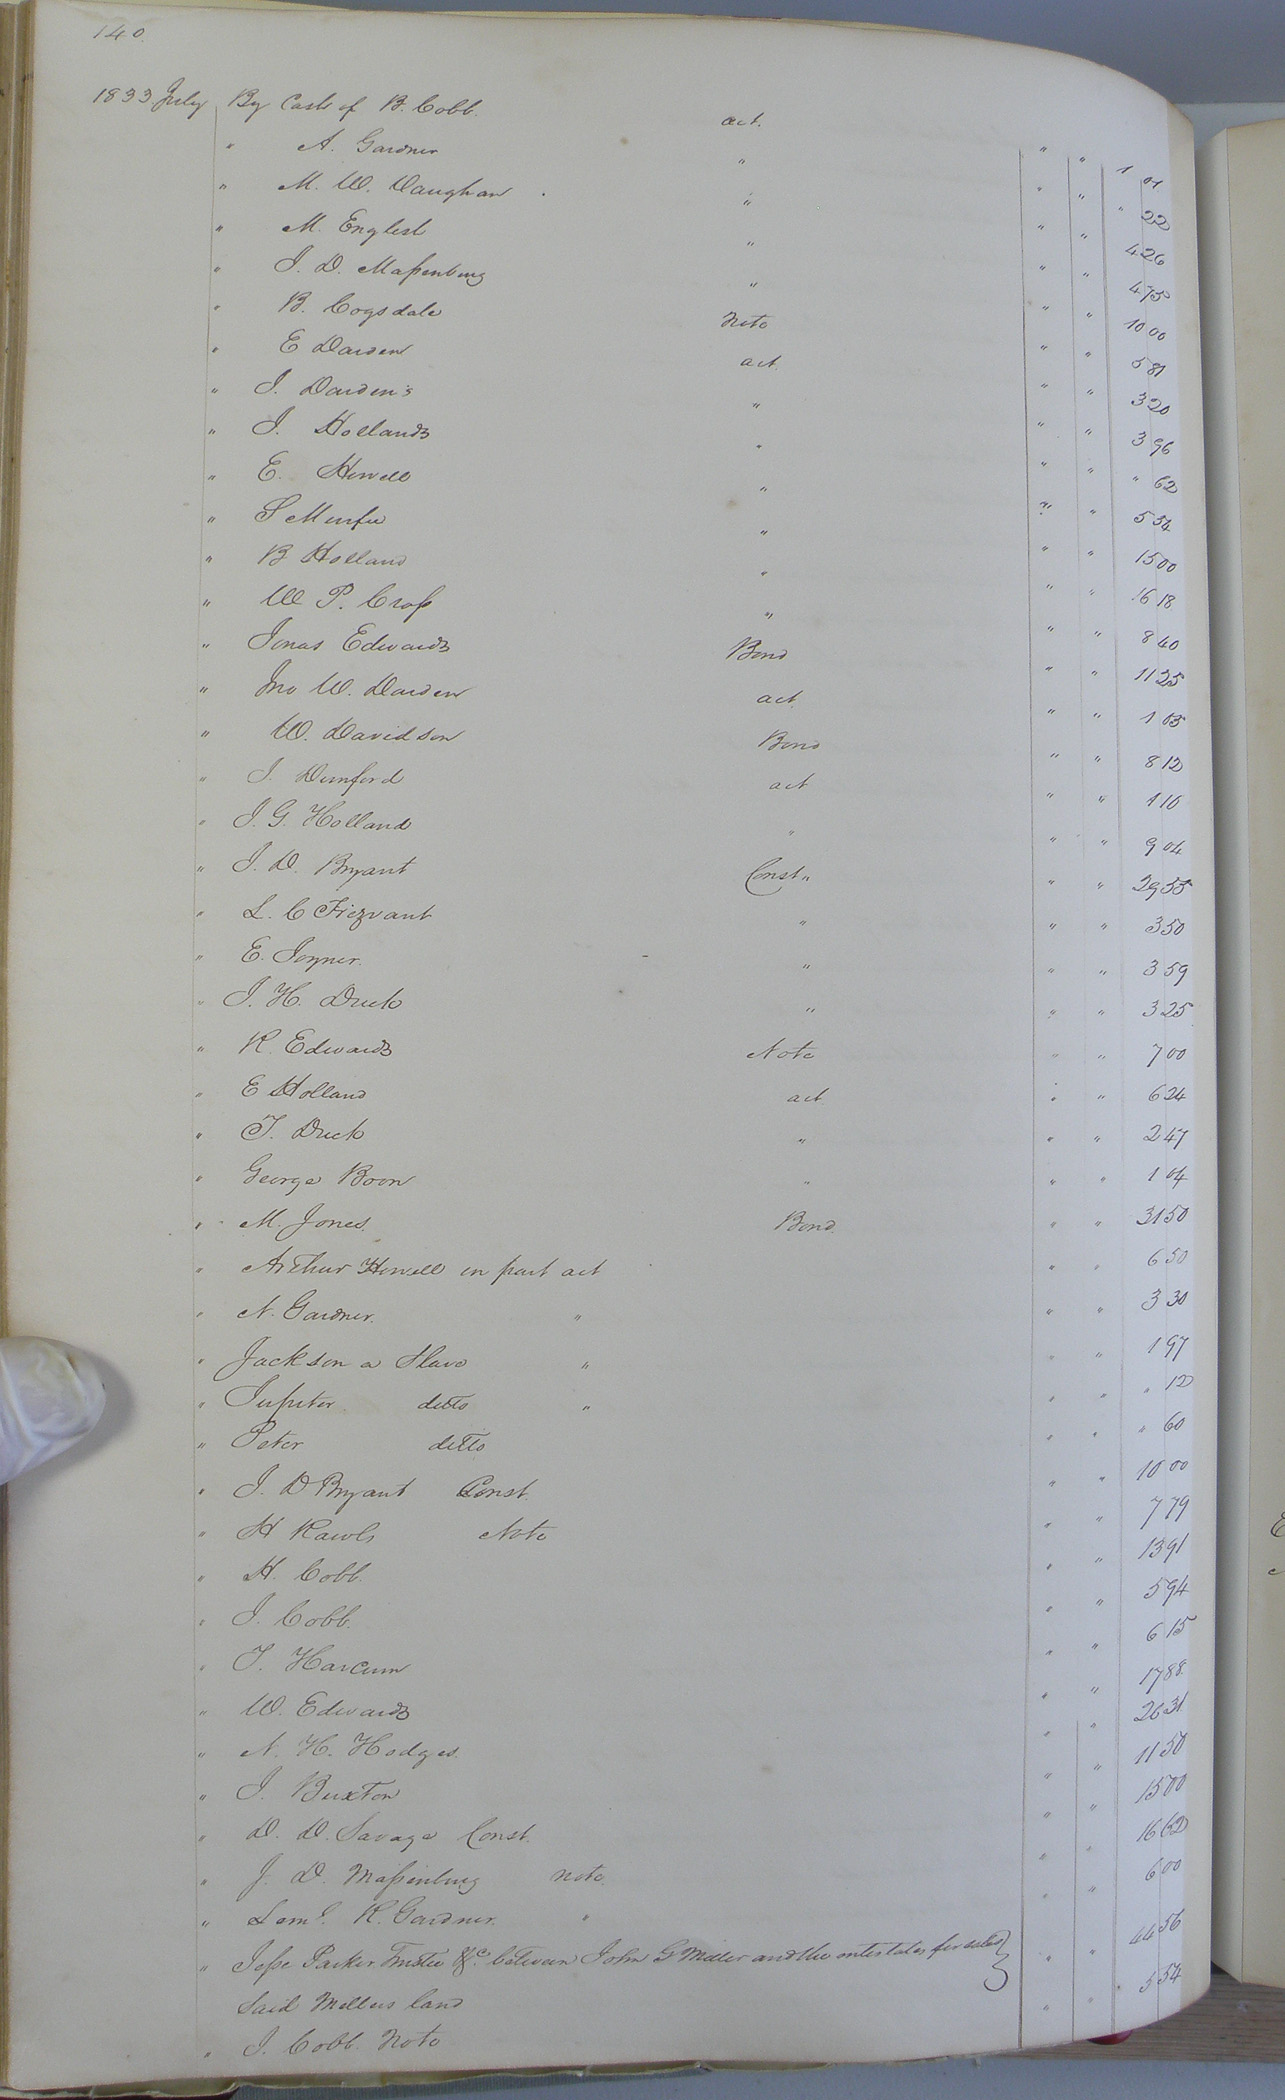 140.
1833 July By Cash of B. Cobb. act. " " 1 01
" A. Gardner " " " " 22
" M. W. Vaughan " " " 4 26
" M. English " " " 4 75
" J. D. Maſsenburg " " " 10 00
" B. Cogsdale Note " " 5 81
" E Darden act. " " 3 20
" J. Darden's " " " 3 96
" J. Hollands " " " " 62
" E. Howell " " " 5 54
" S Murfee " " " 15 00
" B Holland " " " 16 18
" W P. Croſs " " " 8 40
" Jonas Edwards Bond " " 11 25
" Jno W. Darden act. " " 1 05
" W. Davidson Bond " " 8 12
" J. Dunford act " " 1 16
" J. G. Holland " " " 9 04
" J. D. Bryant Const " " " 29 55
" L. C Fiezvant " " " 3 50
" E. Joyner. " " " 3 59
" J. H. Duck " " " 3 25
" R. Edwards Note " " 7 00
" E Holland act " " 6 24
" T. Duck " " " 2 47
" George Boon " " " 1 04
" M. Jones Bond. " " 31 50
" Arthur Howell in part act " " 6 50
" N. Gardner. " " " 3 30
" Jackson a Slave " " " 1 97
" Jupiter ditto " " " " 12
" Peter ditto " " " 60
" J. D Bryant Const. " " 10 00
" H Rawls Note " " 7 79
" H. Cobb. " " 13 91
" J. Cobb. " " 5 94
" T. Harcum " " 6 15
" W. Edwards " " 17 88
" N. H. Hodges " " 26 31
" J. Buxton " " 11 50
" D. D. Savage Const. " " 15 00
" J. D. Maſsenburg note. " " 16 62
" Leml. R. Gardner. " " " 6 00
" Jeſse Parker Trustee &c. between John G Miller and the intestates for sales
said Millers land " " 44 56
" J. Cobb. Note " " 5 54